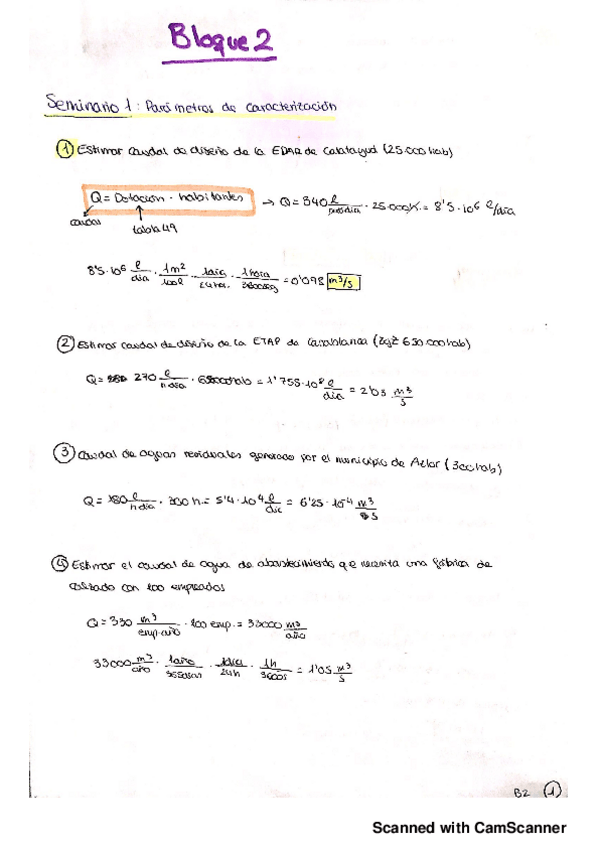 Bloque 2
Seminario 1: Parámetros de caracterización
① Estimar caudal de diseño de la EDAR de Calatayud (25.000 hab)
Q = Dotación · habitantes → Q = 340 l/persdía · 25.000 = 8'5·10⁶ l/día
caudal tabla 49
8'5·10⁶ l/día · · 1día/24hr · 1hora/3600seg = 0'098 m³/s
② Estimar caudal de diseño de la ETAP de Casablanca (Zgz 650.000 hab)
Q = 270 l/h día · 650000hab = 1'755·10⁸ l/día = 2'03 m³/s
③ Caudal de aguas residuales generado por el municipio de (300 hab)
Q = 180 l/h día · 300 h = 5'4·10⁴ l/día = 6'25·10⁻⁴ m³/s
④ Estimar el caudal de agua de abastecimiento que necesita una fábrica de
calzado con 100 empleados
Q = 330 m³/emp·año · 100 emp. = 33000 m³/año
33000 m³/año · 1año/365días · 1día/24h · 1h/3600s = 1'05 m³/s
B2 ①
Scanned with CamScanner